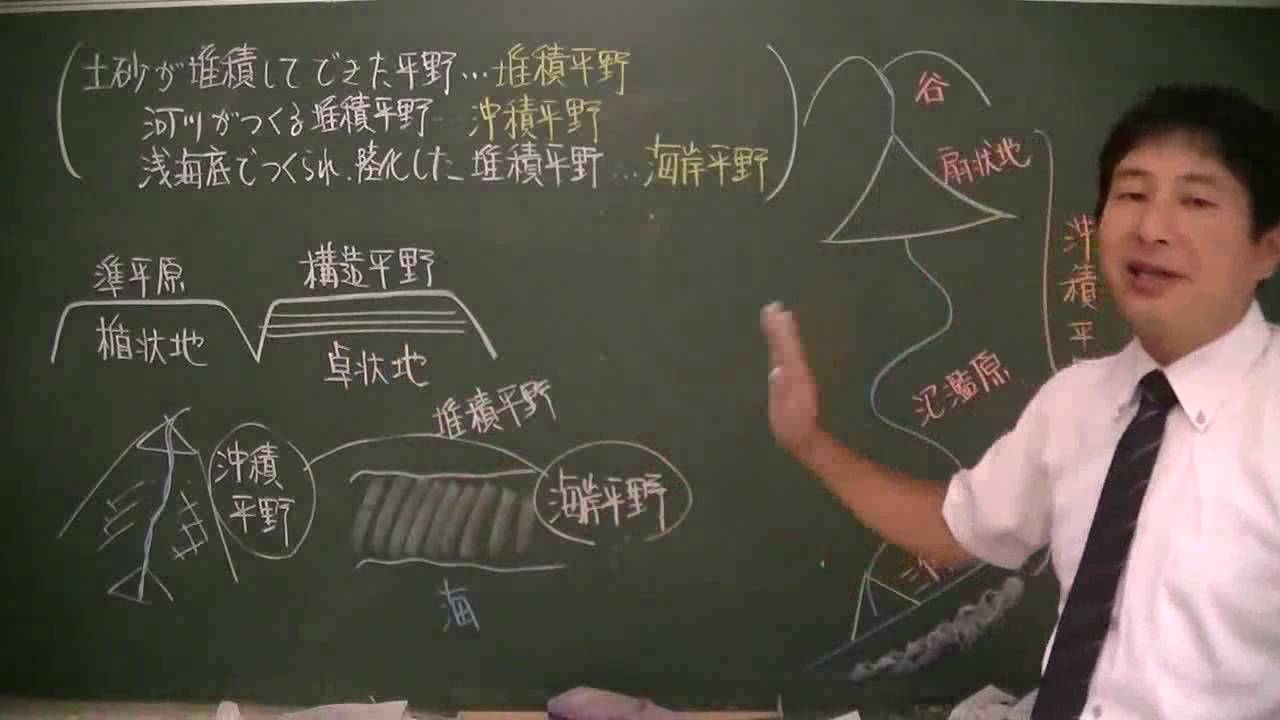 土砂が堆積してできた平野…堆積平野
河川がつくる堆積平野…沖積平野
浅海底でつくられ、陸化した堆積平野…海岸平野
準平原
構造平野
楯状地
卓状地
堆積平野
沖積
平野
海岸平野
海
谷
扇状地
氾濫原
沖積平
三